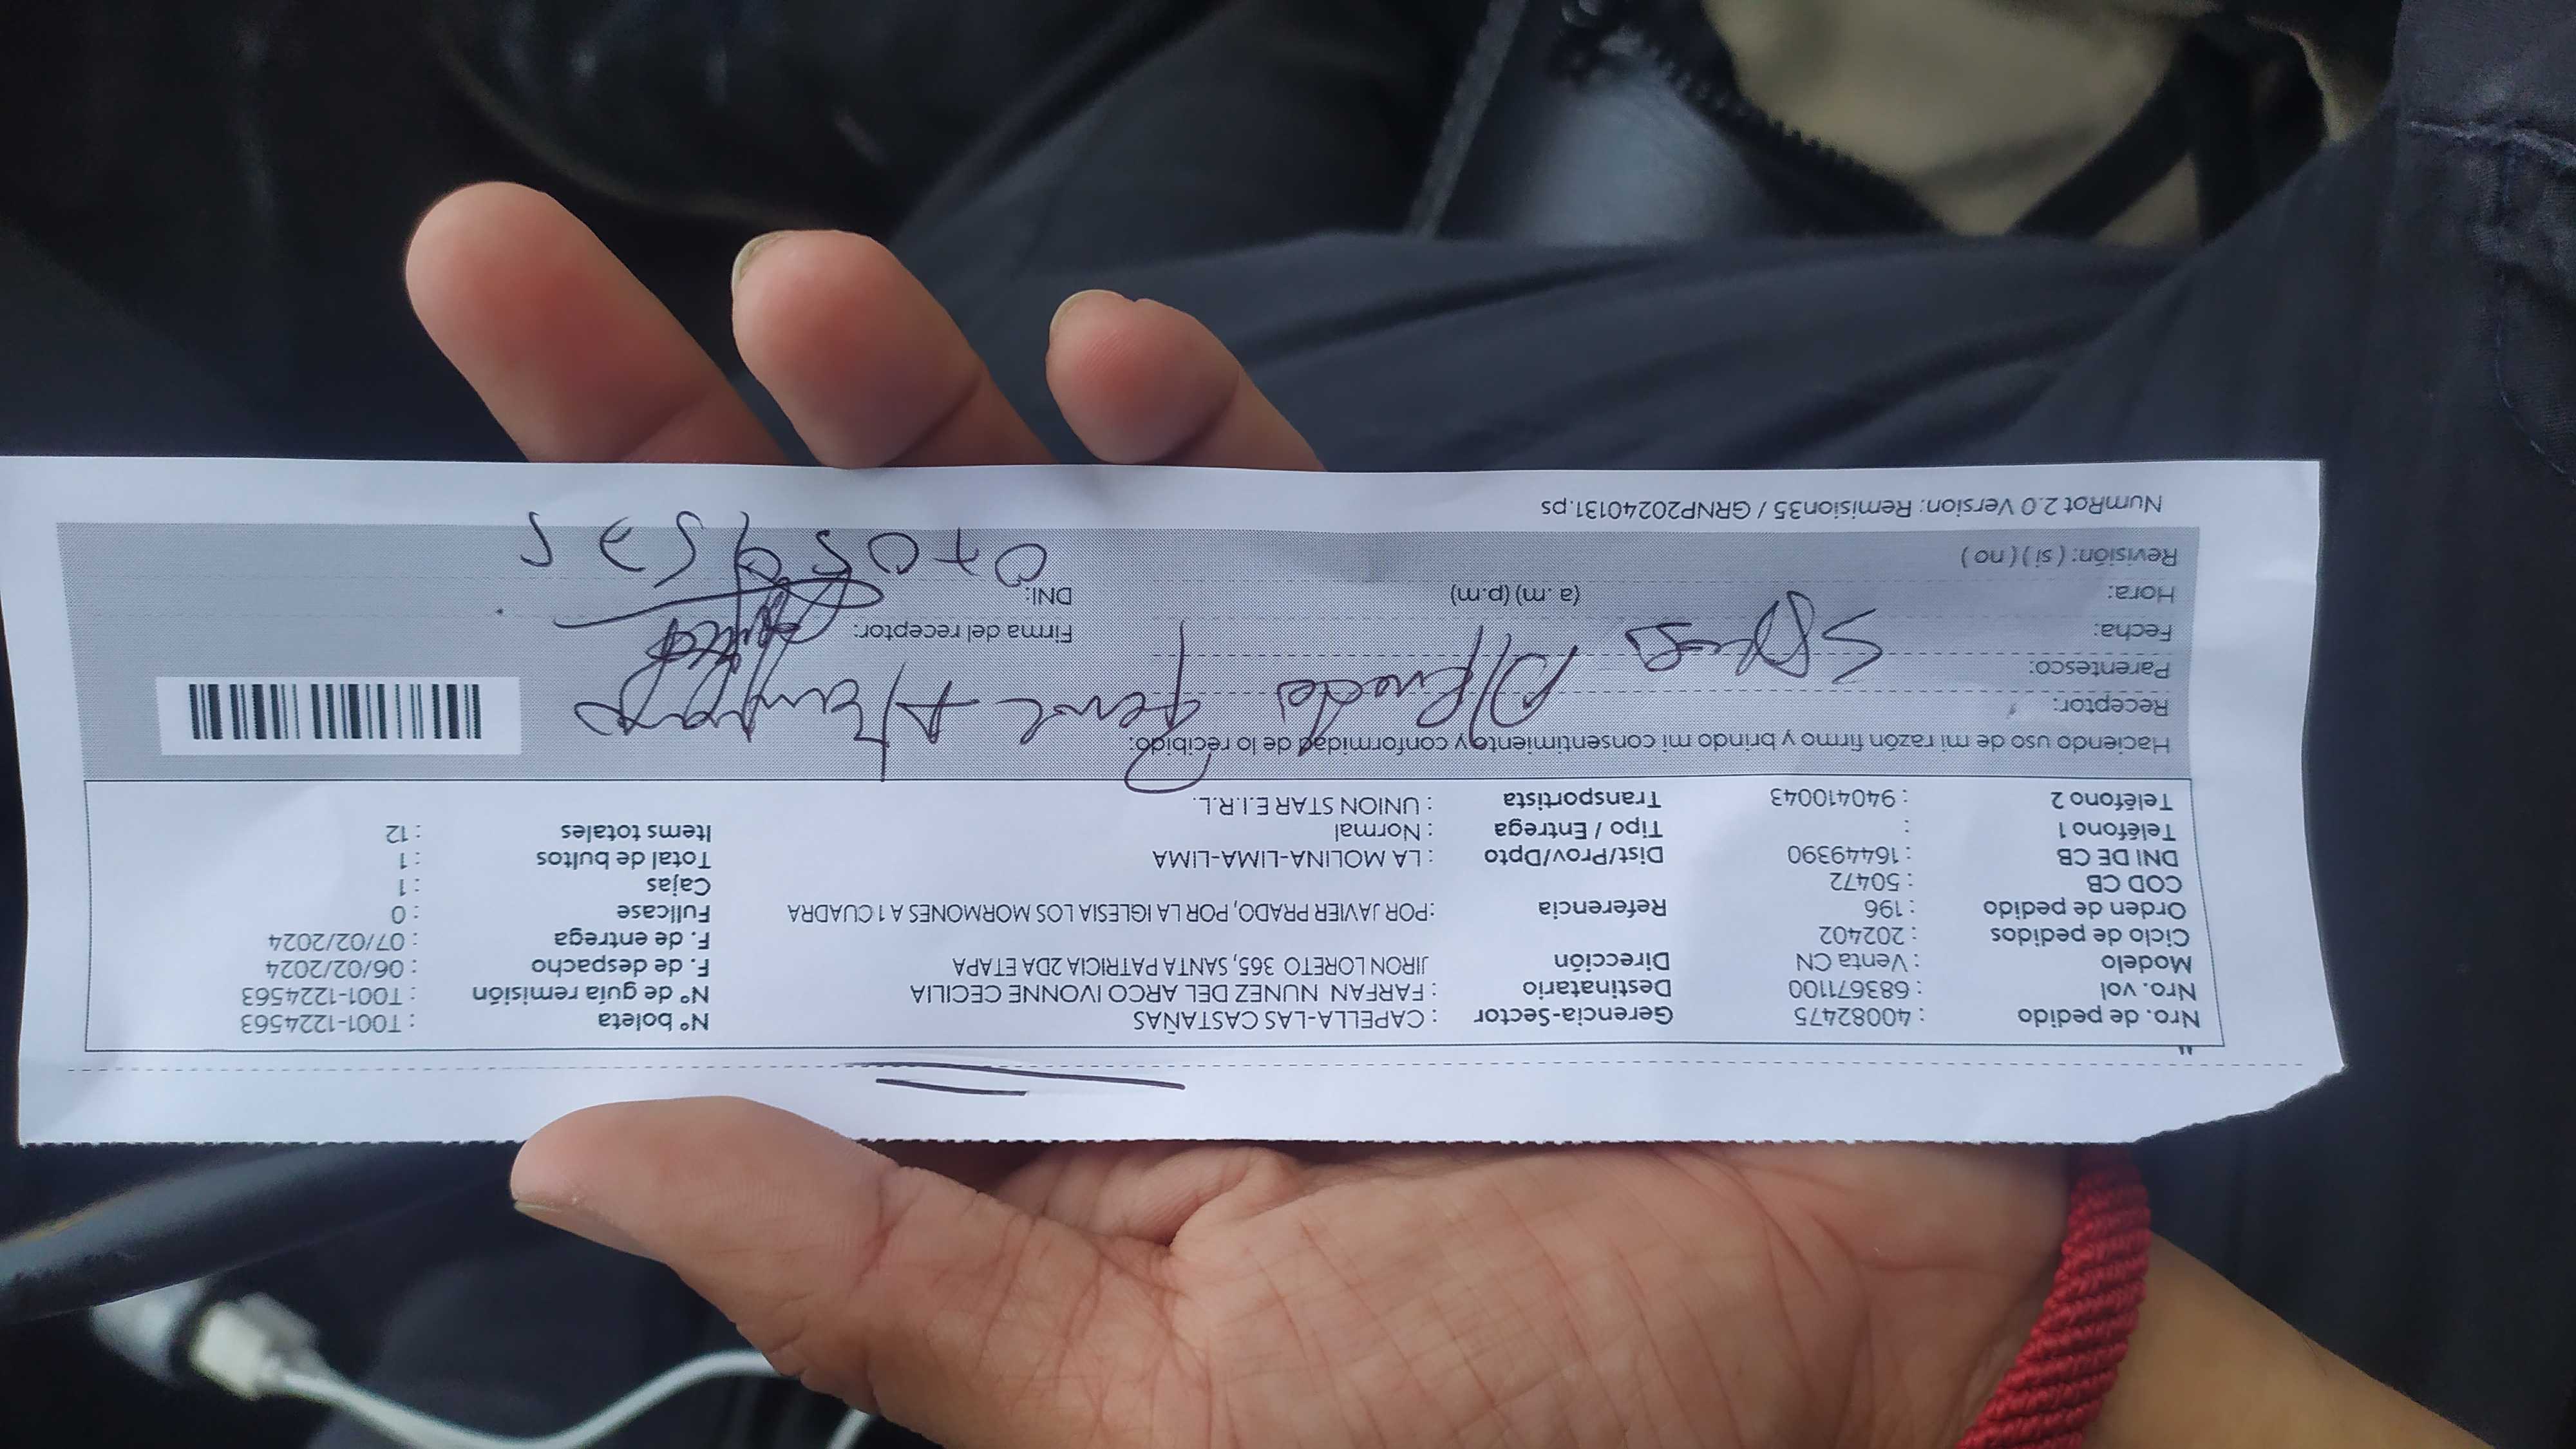 Nro. de pedido : 40082475 Gerencia-Sector : CAPELLA-LAS CASTAÑAS Nº boleta : T001-1224563
Nro. vol : 683671100 Destinatario : FARFAN NUNEZ DEL ARCO IVONNE CECILIA Nº de guía remisión : T001-1224563
Modelo : Venta CN Dirección JIRON LORETO 365, SANTA PATRICIA 2DA ETAPA F. de despacho : 06/02/2024
Ciclo de pedidos : 202402 F. de entrega : 07/02/2024
Orden de pedido : 196 Referencia :POR JAVIER PRADO, POR LA IGLESIA LOS MORMONES A 1 CUADRA Fullcase : 0
COD CB : 50472 Cajas : 1
DNI DE CB : 16449390 Dist/Prov/Dpto : LA MOLINA-LIMA-LIMA Total de bultos : 1
Teléfono 1 : Tipo / Entrega : Normal Items totales : 12
Teléfono 2 : 940410043 Transportista : UNION STAR E.I.R.L.
Haciendo uso de mi razón firmo y brindo mi consentimiento y conformidad de lo recibido:
Receptor: Alfredo
Parentesco: Esposo
Fecha: Firma del receptor:
Hora: (a. m) (p.m) DNI:
Revisión: ( si ) ( no )
NumRot 2.0 Version: Remision35 / GRNP20240131.ps